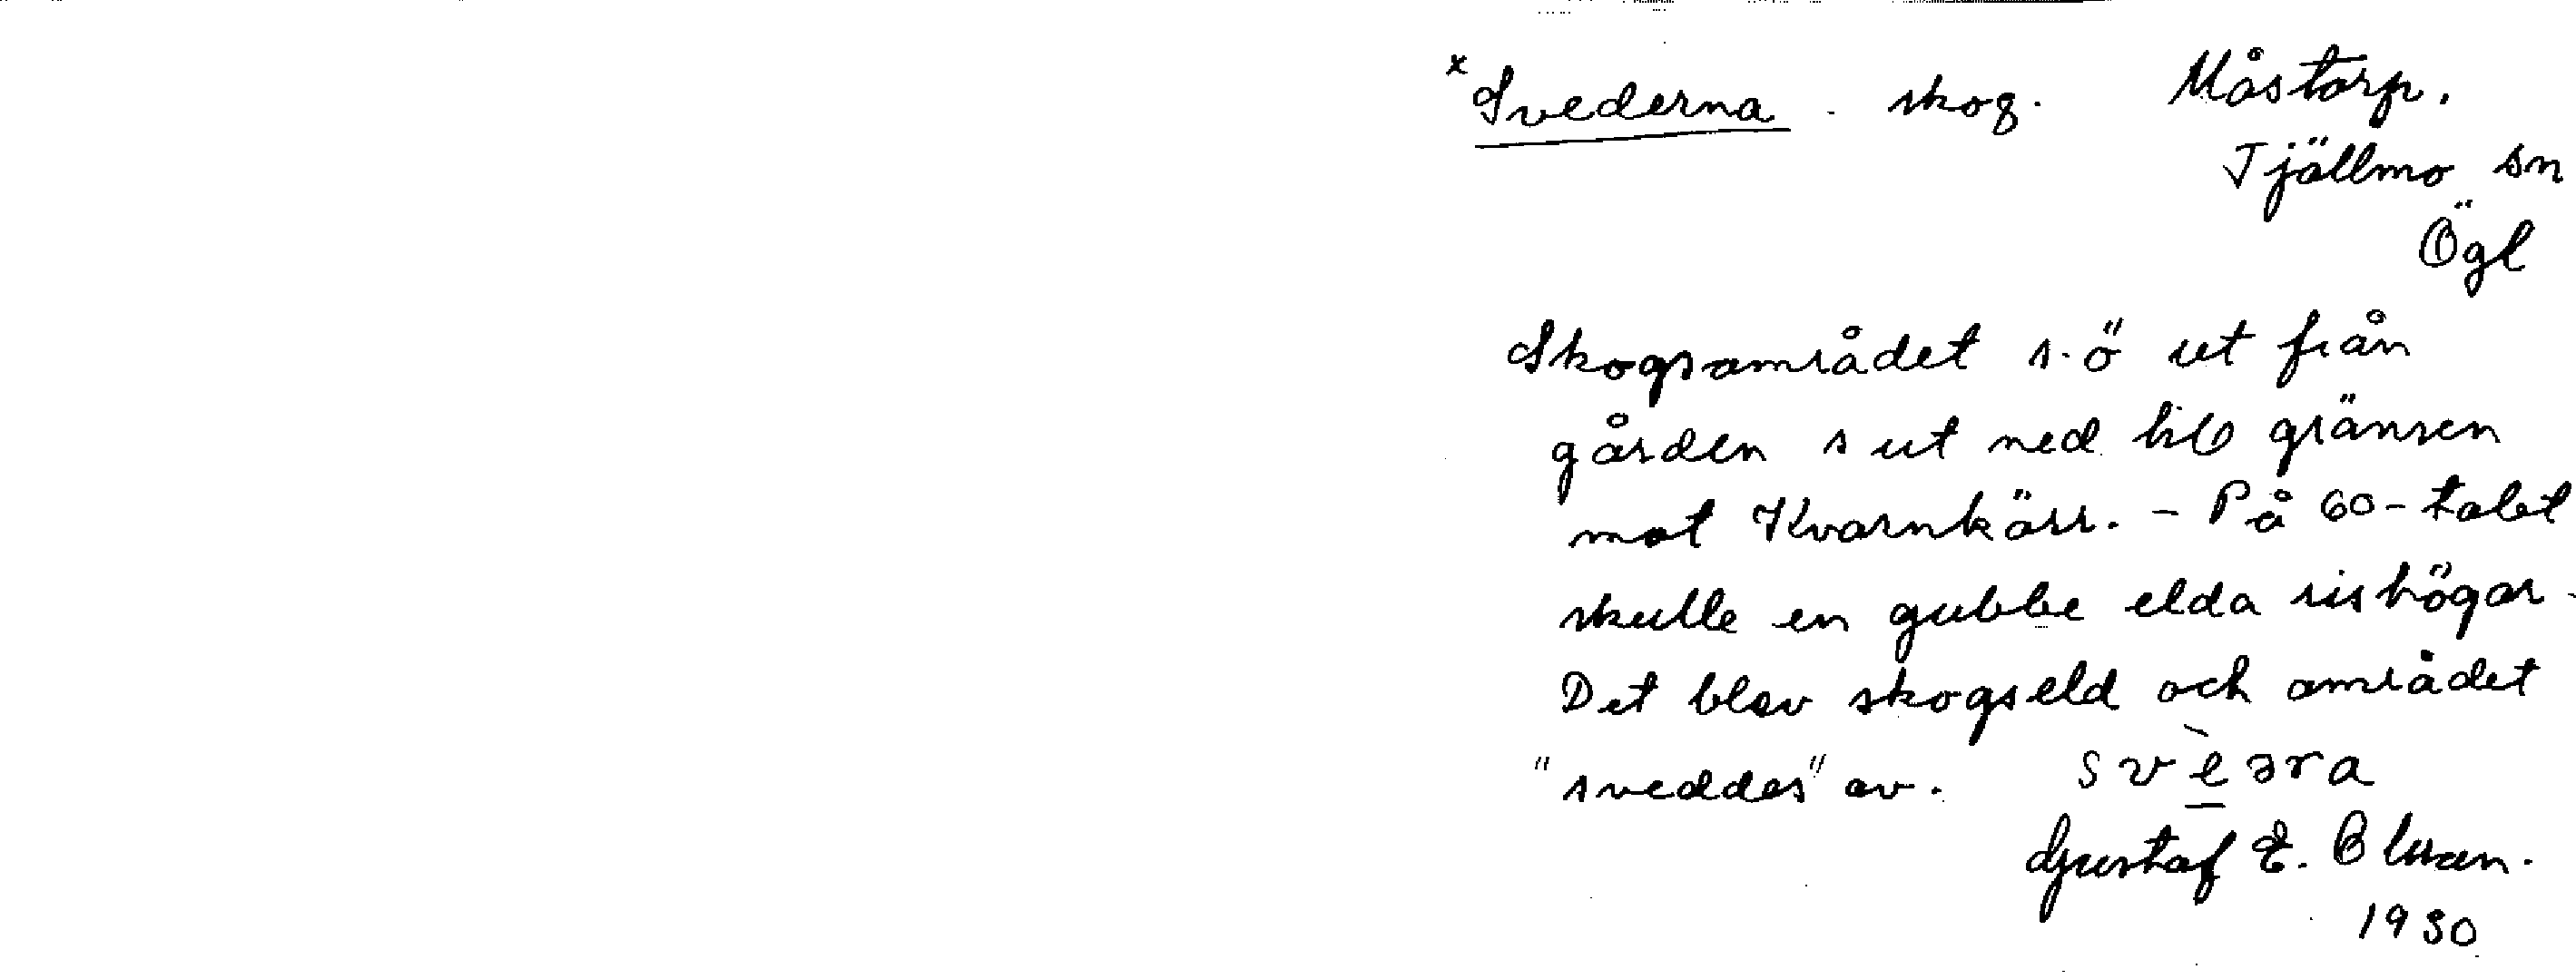 x Svederna. skog. Måstorp.
Tjällmo sn
Ögl
Skogsområdet s.ö ut från
gården s ut ned till gränsen
mot Kvarnkärr. - På 60-talet
skulle en gubbe elda rishögar.
Det blev skogseld och området
"sveddes" av. svèəra
Gustaf E.
1930